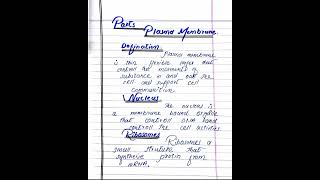 Parts
Plasma Membrane
Defination
Plasma membrane
is thin flexible layer that
control the moments of
substance in and out the
cell and support cell
communition.
Nucleus
The nucleus is
a membrane bound orgenlle
that controll DNA and
controll the cell activities
Ribosomes
Ribosomes a
small structure that
synthesize protein from
mRNA.